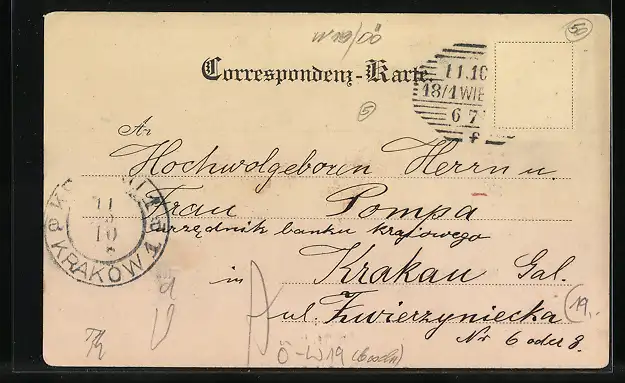 W 19/ÖÖ
50
Correspondenz-Karte.
11.10
18/1 WIE
6 7
f
5
An
Hochwolgeboren Herrn u.
Frau Pompa
urzędnik banku krajowego
in Krakau Gal.
ul. Zwierzyniecka
Nr 6 oder 8.
19.
KRAKÓW 1
11
10
Ö-W19